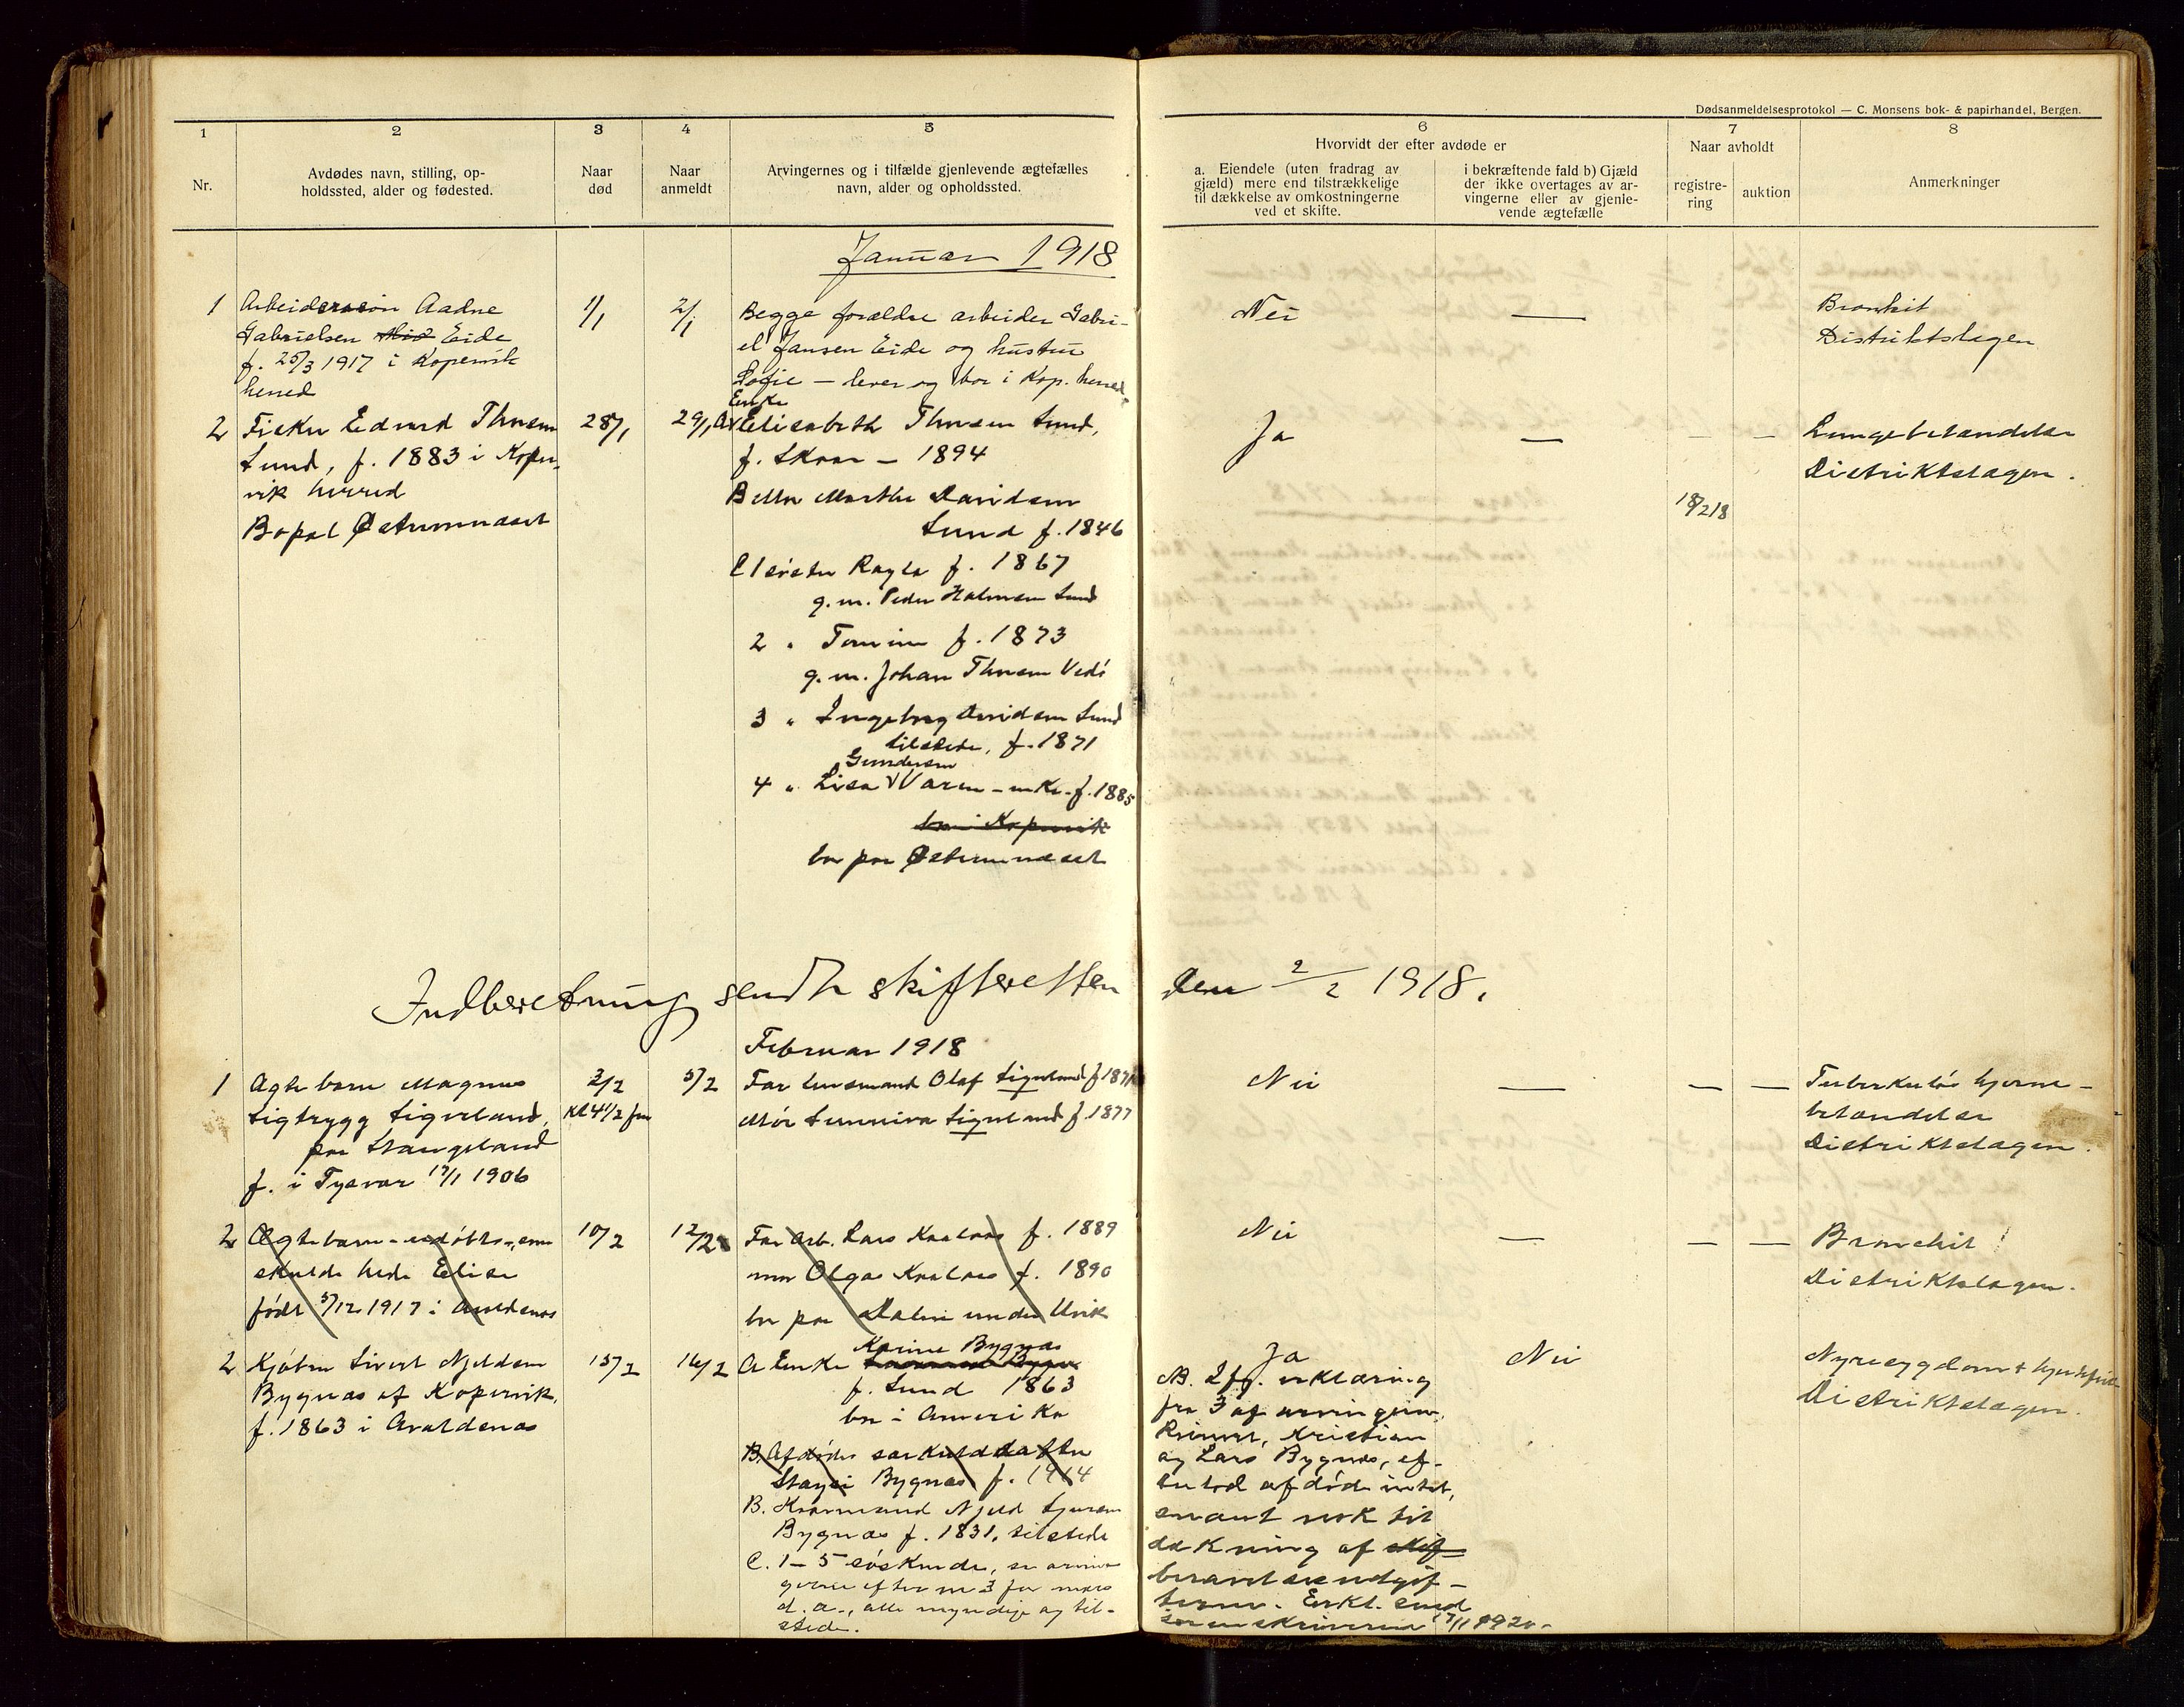 Dødsanmeldelsesprotokol — C. Monsens bok- & papirhandel, Bergen.
1
2
3
4
5
6
7
8
Nr.
Avdødes navn, stilling, op-
holdssted, alder og fødested.
Naar
død
Naar
anmeldt
Arvingernes og i tilfælde gjenlevende ægtefælles
navn, alder og opholdssted.
Hvorvidt der efter avdøde er
a. Eiendele (uten fradrag av
gjæld) mere end tilstrækkelige
til dækkelse av omkostningerne
ved et skifte.
i bekræftende fald b) Gjæld
der ikke overtages av ar-
vingerne eller av gjenle-
vende ægtefælle
Naar avholdt
registre-
ring
auktion
Anmerkninger
Januar 1918
1
Arbeidersøn Aadne
Gabrielsen Eide
f. 25/3 1917 i Kopervik
herred
1/1
2/1
Begge forældre arbeider Gabri-
el Jansen Eide og hustru
Sofie — lever og bor i Kop. herred
Nei
—
Bronkit
Distriktslægen
2
Fisker Edvard Thorsen
Lund, f. 1883 i Koper-
vik herred
Bopæl Østremneset
28/1
29/1
Enke
A Elisabeth Thorsen Lund,
f. Skaar – 1894
B Mor Marthe Davidsen
Lund f. 1846
C 1 søster Ragla f. 1867
g.m. Peder Halvorsen Lund
2 " Tomine f. 1873
g.m. Johan Thorsen Vedø
3 " Ingeborg Davidsen Lund
tilstede, f. 1871
Gundersen
4 " Lisa Våren – enke – f. 1885
bor i Kopervik
bor paa Østremneset
Ja
—
—
—
18/2 18
Lungebetændelse
Distriktslægen.
Indberetning sendt skifteretten den 2/2 1918.
Februar 1918
1
Ægtebarn Magnus
Sigtrygg Sigveland,
paa Stangeland
f. i Tysvær 17/1 1906
3/2
Kl 4 1/2 fm
5/2
Far husmand Olaf Sigveland f 1871
Mor Sunniva Sigveland f. 1877
Nei
—
—
—
Tuberkuløs hjerne-
betændelse
Distriktslægen.
2
Ægtebarn – udøbt –, som
skulde hede Elise
født 5/12 1917 i Avaldsnes
10/2
12/2
Far arb. Lars Kaalaas f. 1889
mor Olga Kaalaas f. 1890
bor paa Dalen under Utvik
Nei
—
—
—
Bronchit
Distriktslægen.
2
Kjøbm Sivert Njeldsen
Bygnæs af Kopervik,
f. 1863 i Avaldsnes
15/2
16/2
Karine Bygnæs
A Enke
f. Lund 1863
bor i Amerika
B. Afdødes særkuldsdatter
Bygnæs f. 1914
B. Kaarmand Njeld Sjursen
Bygnæs f. 1831, tilstede
C. 1–5 søskende, se arvin-
gerne efter nr 3 for mars
d.a., alle myndige og til-
stede.
Ja
NB. Ifg. erklæring
fra 3 af arvingerne,
Reinert, Kristian
og Lars Bygnæs, ef-
terlod afdøde intet,
enaut nok til
dækning af skif-
begravelsesudgif-
terne. Erkl. sendt
sorenskriveren 17/1 1920.
Nei
Nyresygdom & hjertefeil
Distriktslægen.